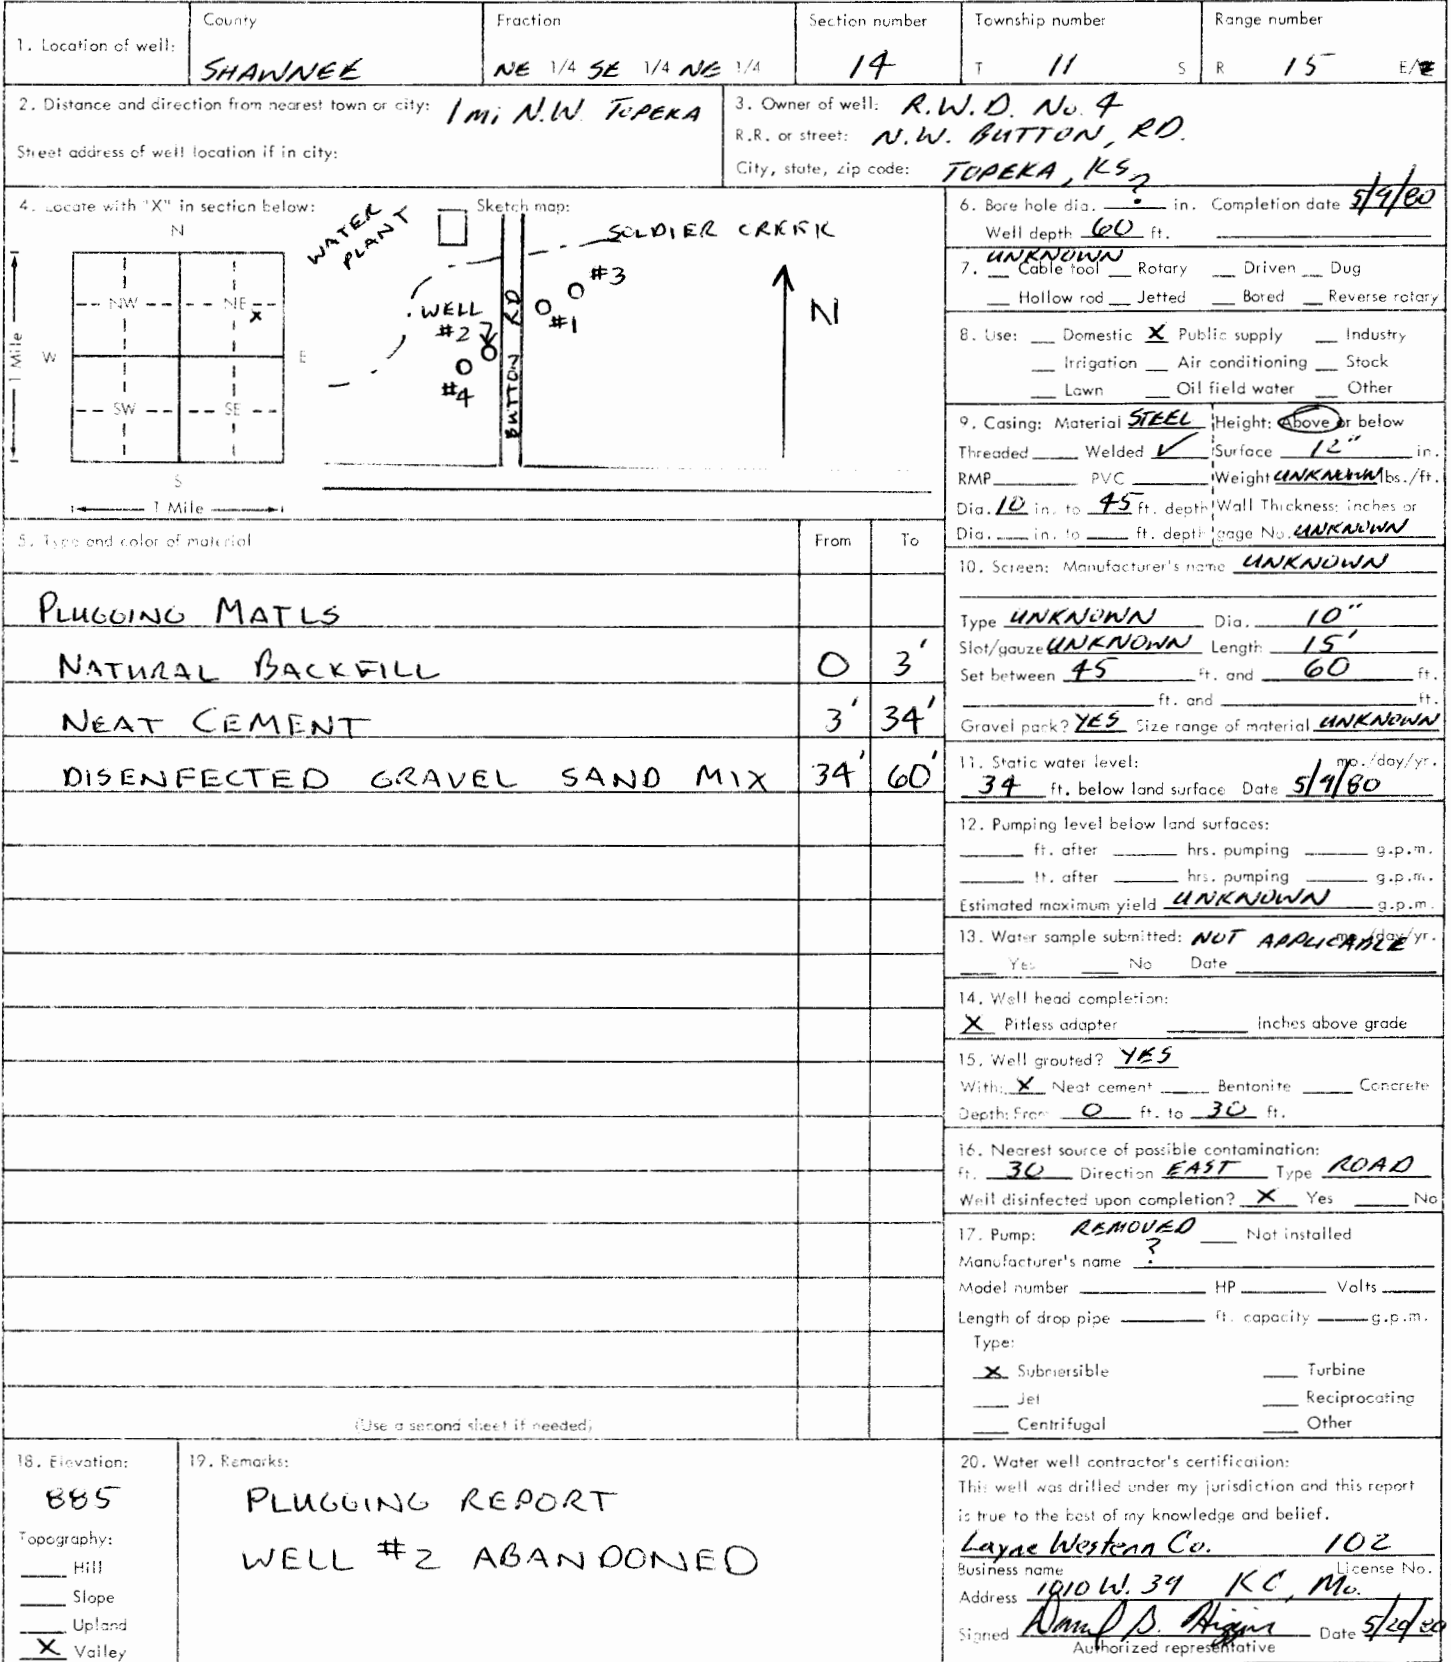 1. Location of well: County SHAWNEE Fraction NE 1/4 SE 1/4 NE 1/4 Section number 14 Township number T 11 S Range number R 15 E/W
2. Distance and direction from nearest town or city: 1 mi N.W. TOPEKA
Street address of well location if in city:
3. Owner of well: R.W.D. No. 4
R.R. or street: N.W. BUTTON, RD.
City, state, zip code: TOPEKA, KS,
4. Locate with "X" in section below:
N
NW NE
X
W E
SW SE
S
1 Mile
1 Mile
Sketch map:
WATER PLANT
SOLDIER CREEK
#3
WELL
#2
#1
#4
BUTTON RD
N
5. Type and color of material From To
PLUGGING MATLS
NATURAL BACKFILL 0 3'
NEAT CEMENT 3' 34'
DISENFECTED GRAVEL SAND MIX 34' 60'
(Use a second sheet if needed)
6. Bore hole dia. ? in. Completion date 5/9/80
Well depth 60 ft.
UNKNOWN
7. Cable tool Rotary Driven Dug
Hollow rod Jetted Bored Reverse rotary
8. Use: Domestic X Public supply Industry
Irrigation Air conditioning Stock
Lawn Oil field water Other
9. Casing: Material STEEL Height: Above or below
Threaded Welded ✓ Surface 12" in.
RMP PVC Weight UNKNOWN lbs./ft.
Dia. 10 in. to 45 ft. depth Wall Thickness: inches or
Dia. in. to ft. depth gage No. UNKNOWN
10. Screen: Manufacturer's name UNKNOWN
Type UNKNOWN Dia. 10"
Slot/gauze UNKNOWN Length 15'
Set between 45 ft. and 60 ft.
ft. and ft.
Gravel pack? YES Size range of material UNKNOWN
11. Static water level: mo./day/yr.
34 ft. below land surface Date 5/9/80
12. Pumping level below land surfaces:
ft. after hrs. pumping g.p.m.
ft. after hrs. pumping g.p.m.
Estimated maximum yield UNKNOWN g.p.m.
13. Water sample submitted: NOT APPLICABLE mo./day/yr.
Yes No Date
14. Well head completion:
X Pitless adapter inches above grade
15. Well grouted? YES
With: X Neat cement Bentonite Concrete
Depth: From 0 ft. to 30 ft.
16. Nearest source of possible contamination:
ft. 30 Direction EAST Type ROAD
Well disinfected upon completion? X Yes No
17. Pump: REMOVED Not installed
Manufacturer's name ?
Model number HP Volts
Length of drop pipe ft. capacity g.p.m.
Type:
X Submersible Turbine
Jet Reciprocating
Centrifugal Other
18. Elevation:
885
Topography:
Hill
Slope
Upland
X Valley
19. Remarks:
PLUGGING REPORT
WELL #2 ABANDONED
20. Water well contractor's certification:
This well was drilled under my jurisdiction and this report
is true to the best of my knowledge and belief.
Layne Western Co. 102
Business name License No.
Address 1010 W. 39 KC, Mo.
Signed Date 5/20/80
Authorized representative